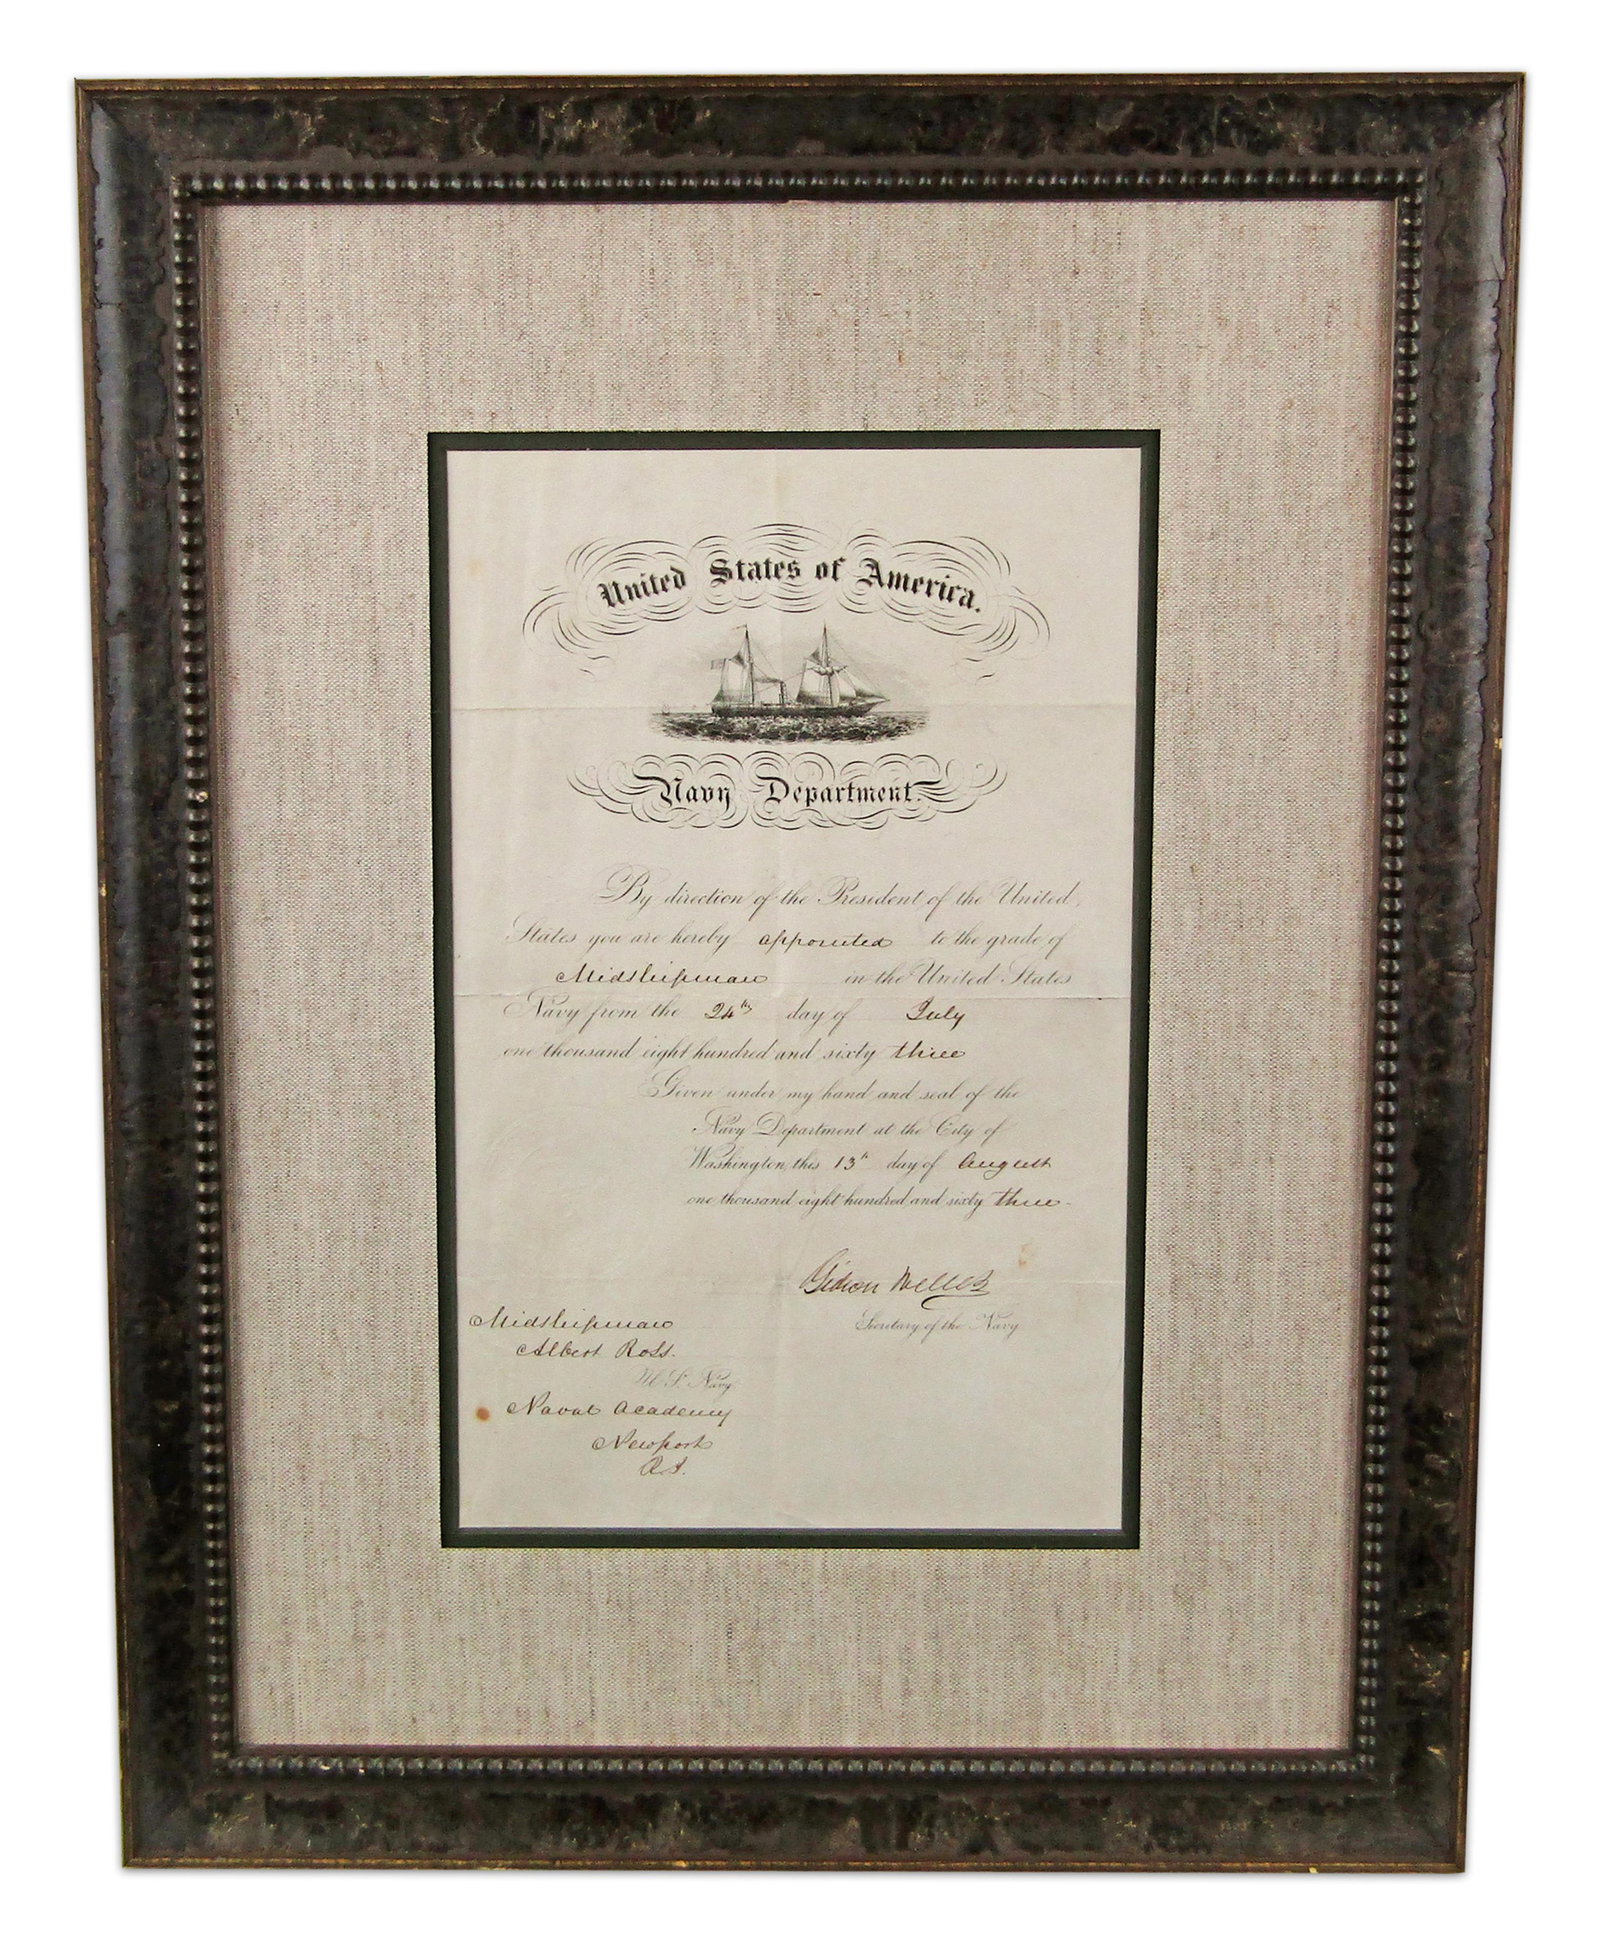 United States of America.
Navy Department.
By direction of the President of the United
States you are hereby appointed to the grade of
Midshipman in the United States
Navy from the 24th day of July
one thousand eight hundred and sixty three
Given under my hand and seal of the
Navy Department at the City of
Washington, this 13th day of August
one thousand eight hundred and sixty three
Gideon Welles
Secretary of the Navy
Midshipman
Albert Ross.
U.S. Navy
Naval Academy
Newport
R.I.